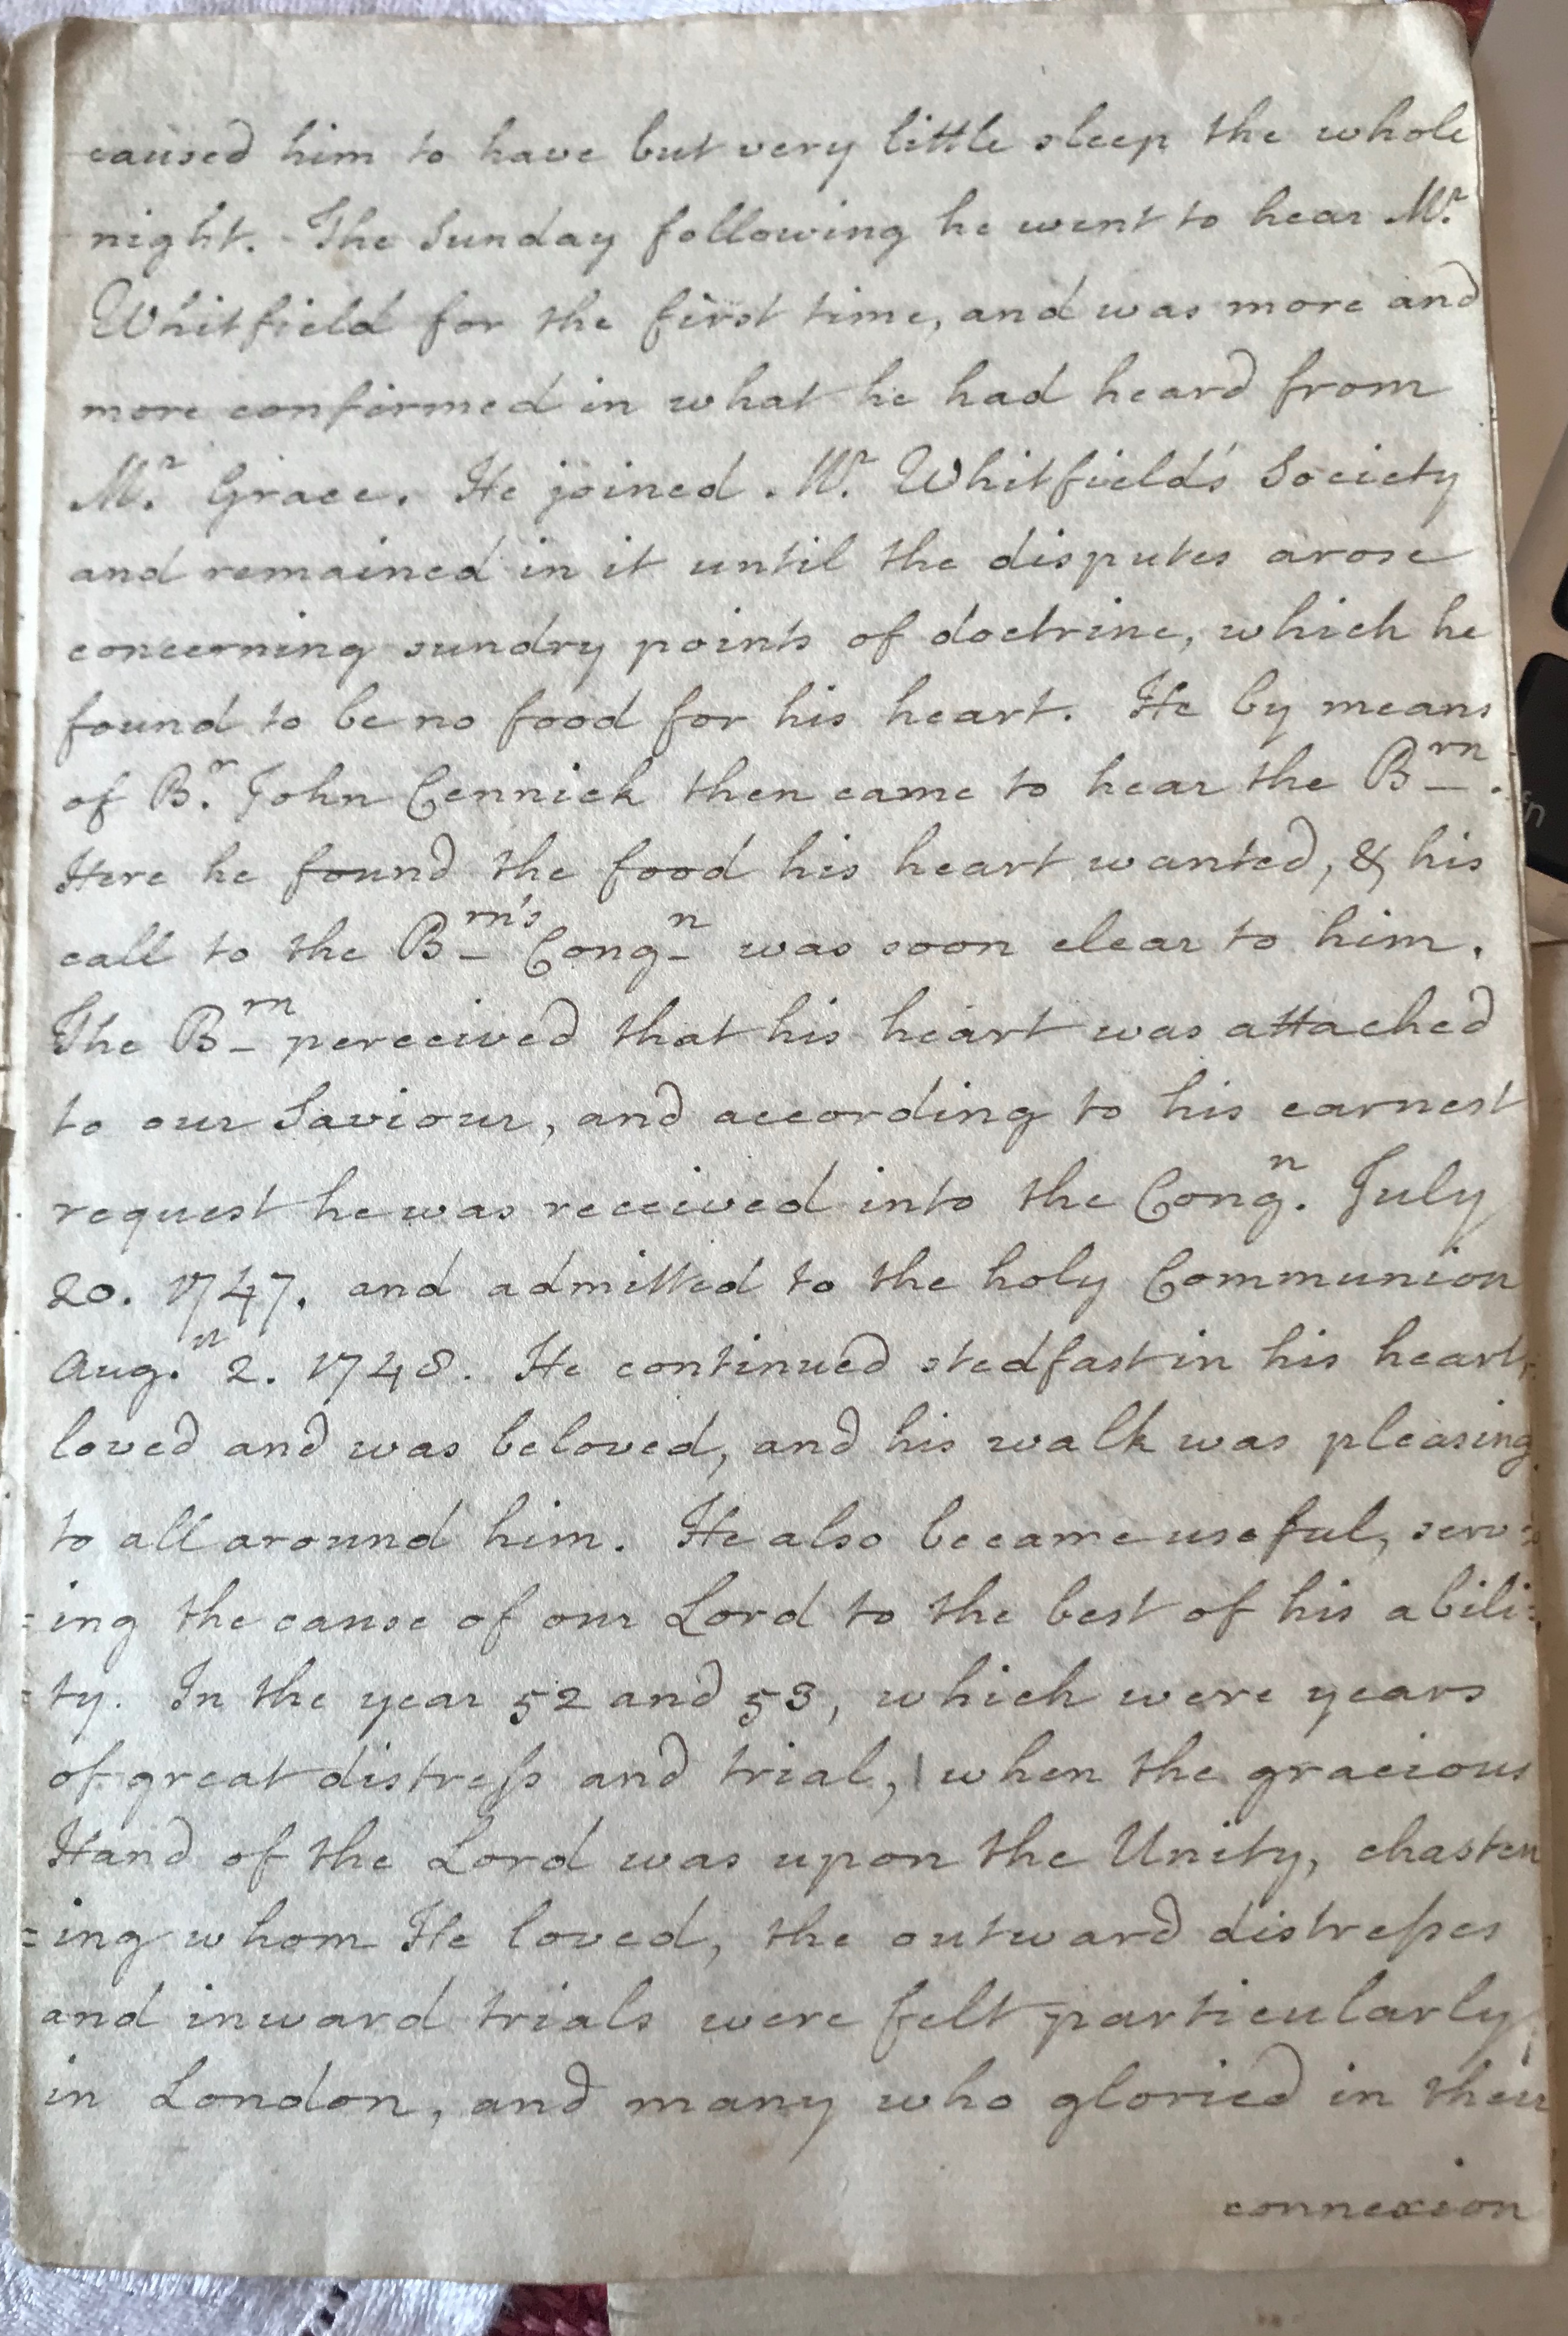 caused him to have but very little sleep the whole
night. The Sunday following he went to hear Mr.
Whitfield for the first time, and was more and
more confirmed in what he had heard from
Mr. Grace. He joined Mr. Whitfield's Society
and remained in it until the disputes arose
concerning sundry points of doctrine, which he
found to be no food for his heart. He by means
of Br. John Cennick then came to hear the Brn.
Here he found the food his heart wanted, & his
call to the Brn's Congn was soon clear to him.
The Brn perceived that his heart was attached
to our Saviour, and according to his earnest
request he was received into the Congn. July
20. 1747. and admitted to the holy Communion
Aug. 2. 1748. He continued stedfast in his heart,
loved and was beloved, and his walk was pleasing
to all around him. He also became useful, serv=
=ing the cause of our Lord to the best of his abili=
=ty. In the year 52 and 53, which were years
of great distreſs and trial, when the gracious
Hand of the Lord was upon the Unity, chasten
=ing whom He loved, the outward distreſses
and inward trials were felt particularly
in London, and many who gloried in their
connexion